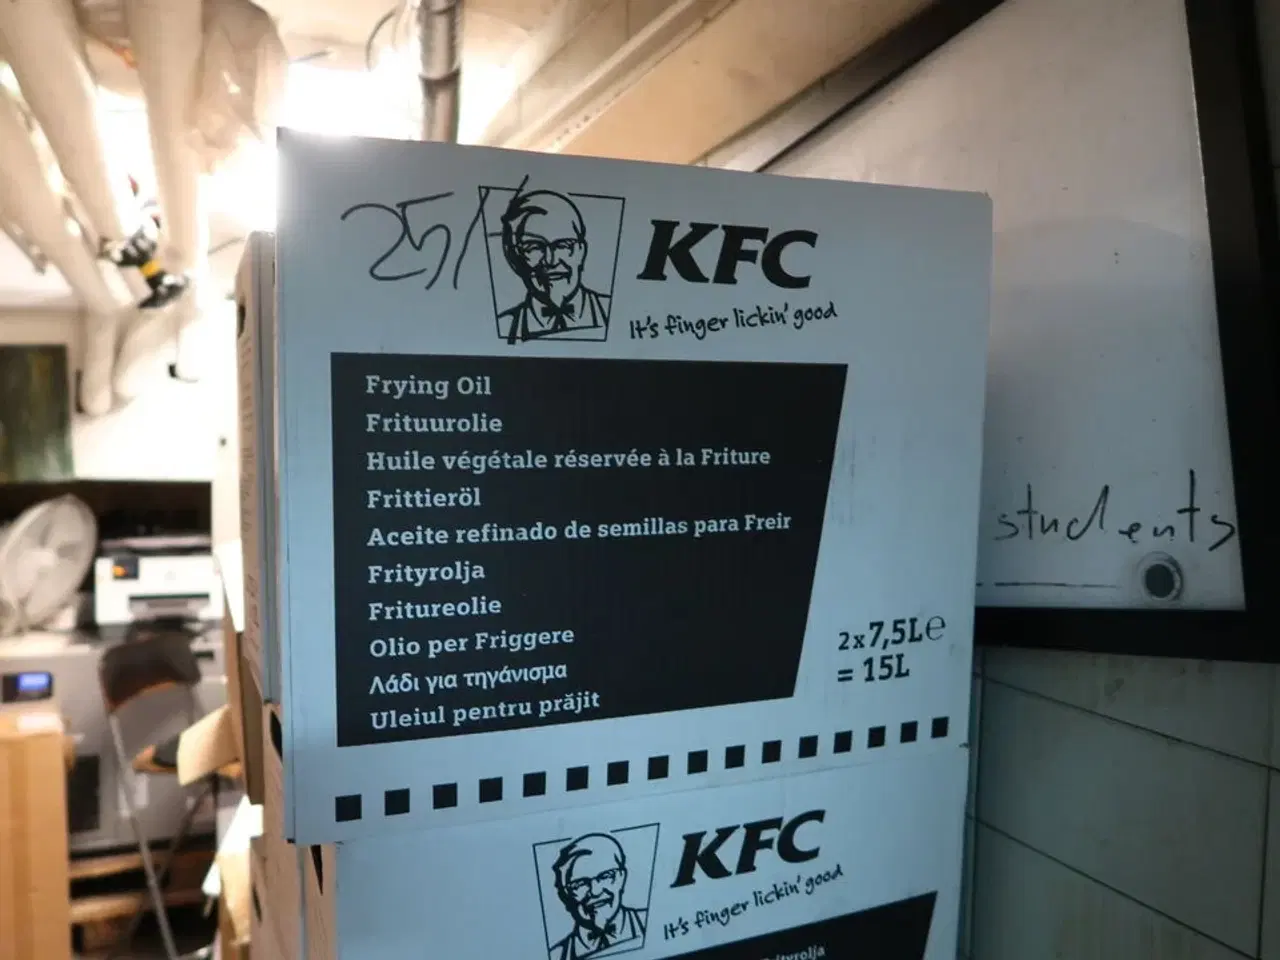 25/
KFC
It's finger lickin' good
Frying Oil
Frituurolie
Huile végétale réservée à la Friture
Frittieröl
Aceite refinado de semillas para Freir
Frityrolja
Fritureolie
Olio per Friggere
Λάδι για τηγάνισμα
Uleiul pentru prăjit
2x7,5L℮
= 15L
students
KFC
It's finger lickin' good
Frityrolja